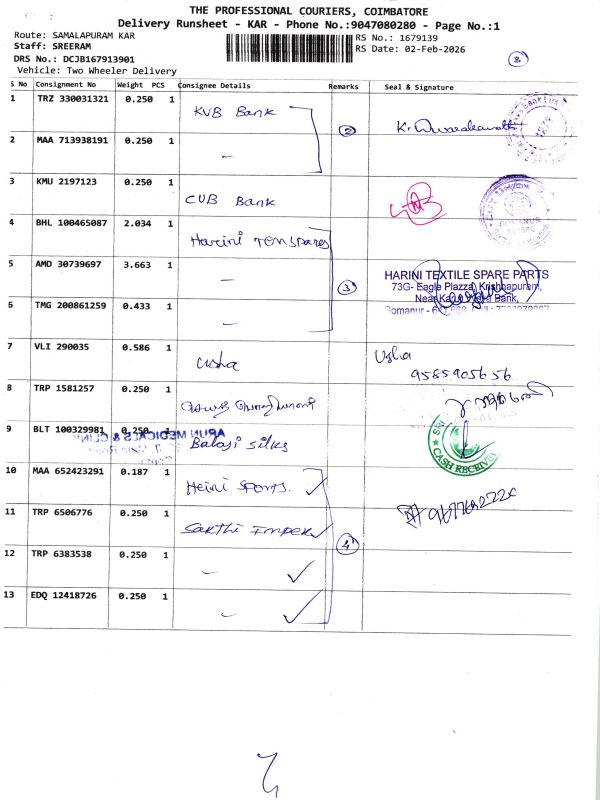 THE PROFESSIONAL COURIERS, COIMBATORE
Delivery Runsheet - KAR - Phone No.:9047080280 - Page No.:1
Route: SAMALAPURAM KAR
RS No.: 1679139
Staff: SREERAM
RS Date: 02-Feb-2026
DRS No.: DCJB167913901
Vehicle: Two Wheeler Delivery
S No Consignment No Weight PCS Consignee Details Remarks Seal & Signature
1 TRZ 330031321 0.250 1 KVB Bank
2 MAA 713938191 0.250 1 - 2
3 KMU 2197123 0.250 1 CUB Bank
4 BHL 100465087 2.034 1 Harini
5 AMD 30739697 3.663 1 - 3
HARINI TEXTILE SPARE PARTS
73G- Eagle Plazza, Krishnapuram,
6 TMG 200861259 0.433 1 -
7 VLI 290035 0.586 1 Usha Usha
9585905656
8 TRP 1581257 0.250 1
9 BLT 100329981 0.250 1 Balaji Silks
ARUN MEDICALS & CLINIC
CASH RECEIVED
10 MAA 652423291 0.187 1 Heini Sports.
11 TRP 6506776 0.250 1 Sakthi Impex
12 TRP 6383538 0.250 1 - 4
13 EDQ 12418726 0.250 1 -